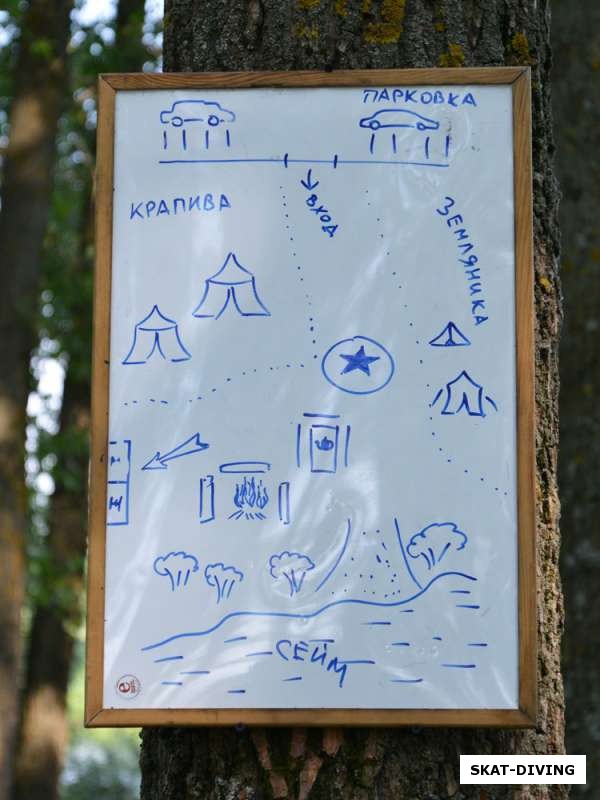 ПАРКОВКА
ВХОД
КРАПИВА
ЗЕМЛЯНИКА
СЕЙМ
SKAT-DIVING